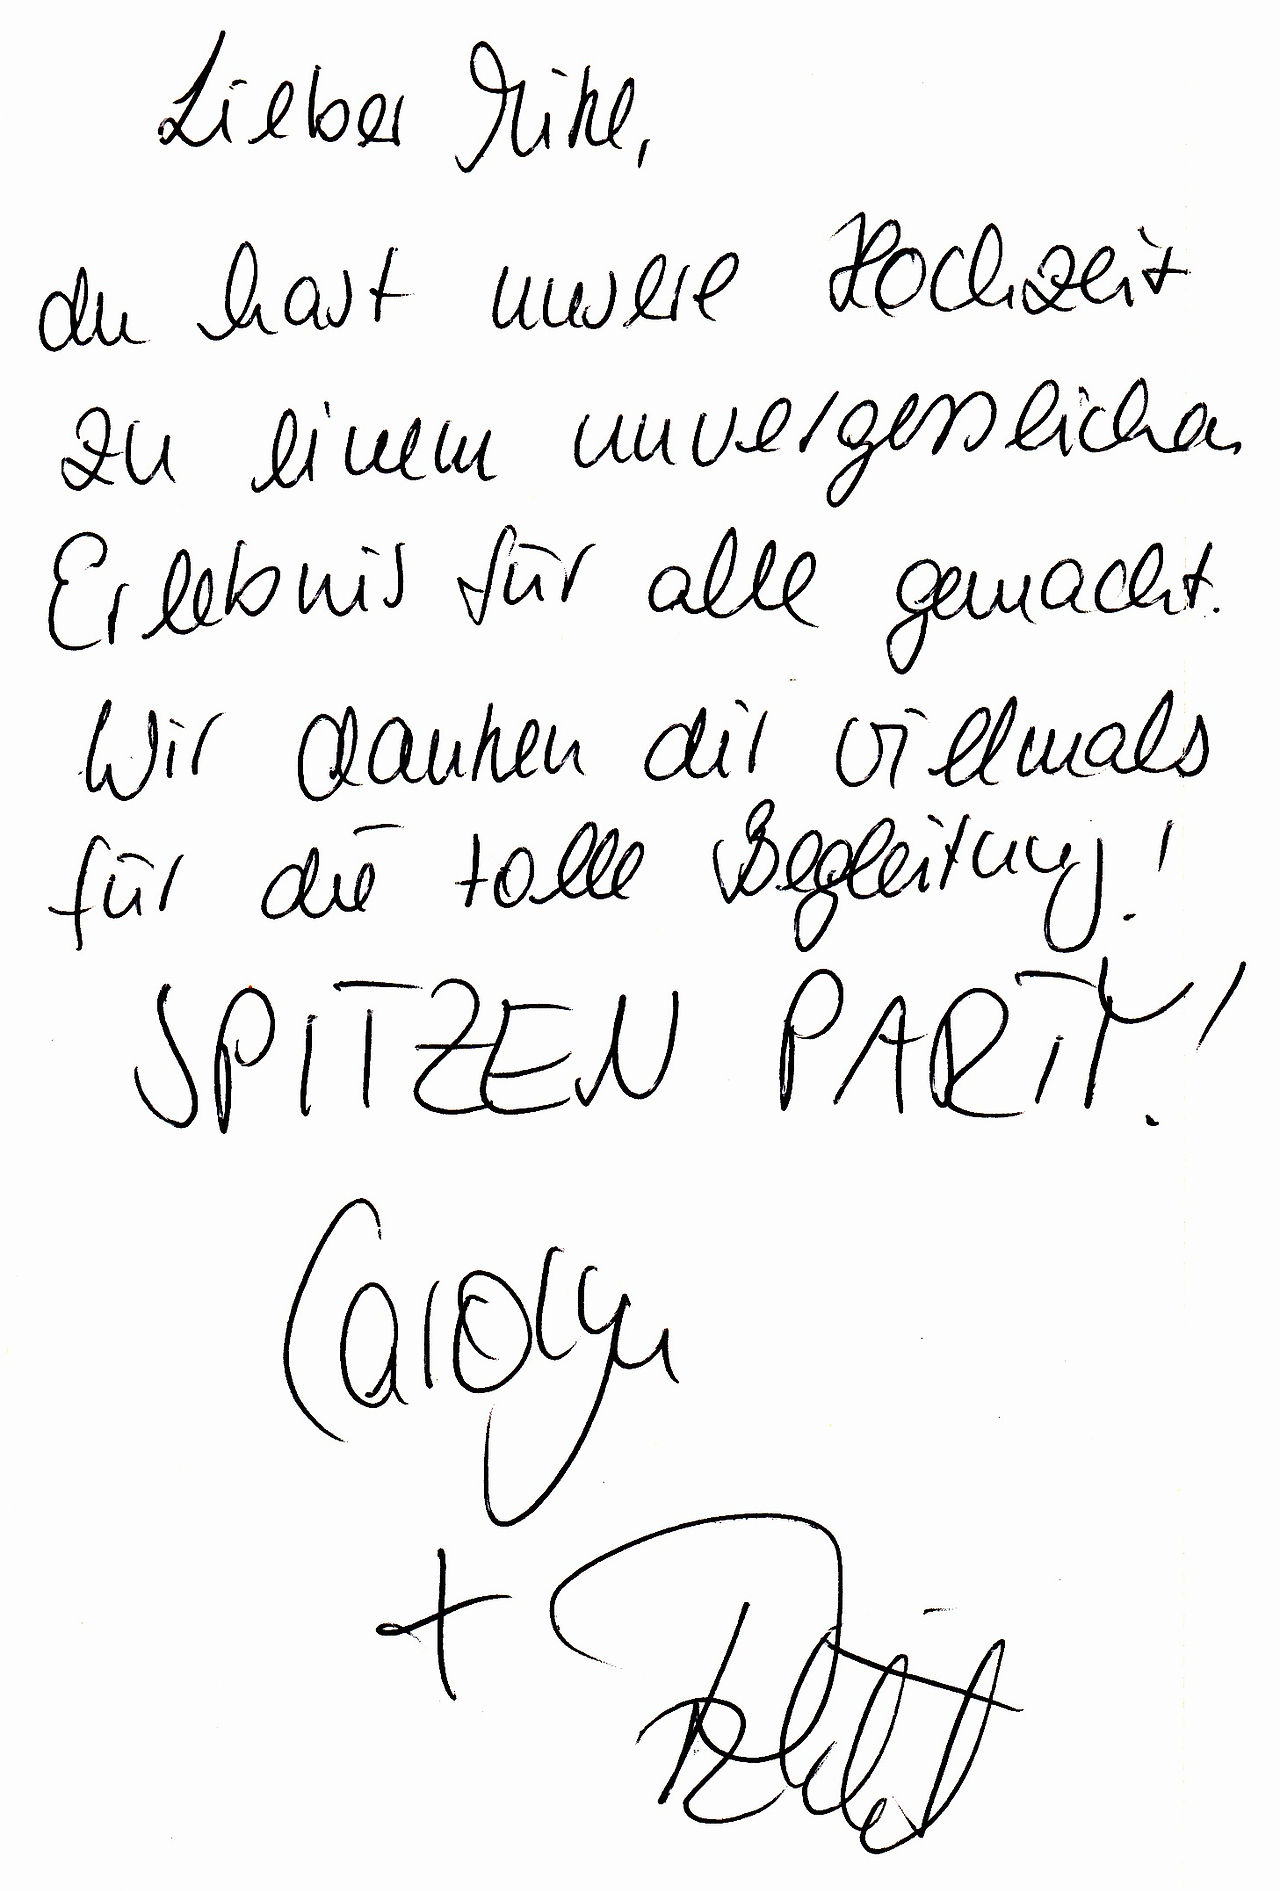 Lieber Mike,
du hast unsere Hochzeit
zu einem unvergesslichen
Erlebnis für alle gemacht.
Wir danken dir vielmals
für die tolle Begleitung!
SPITZEN PARTY!
Carolyn
+